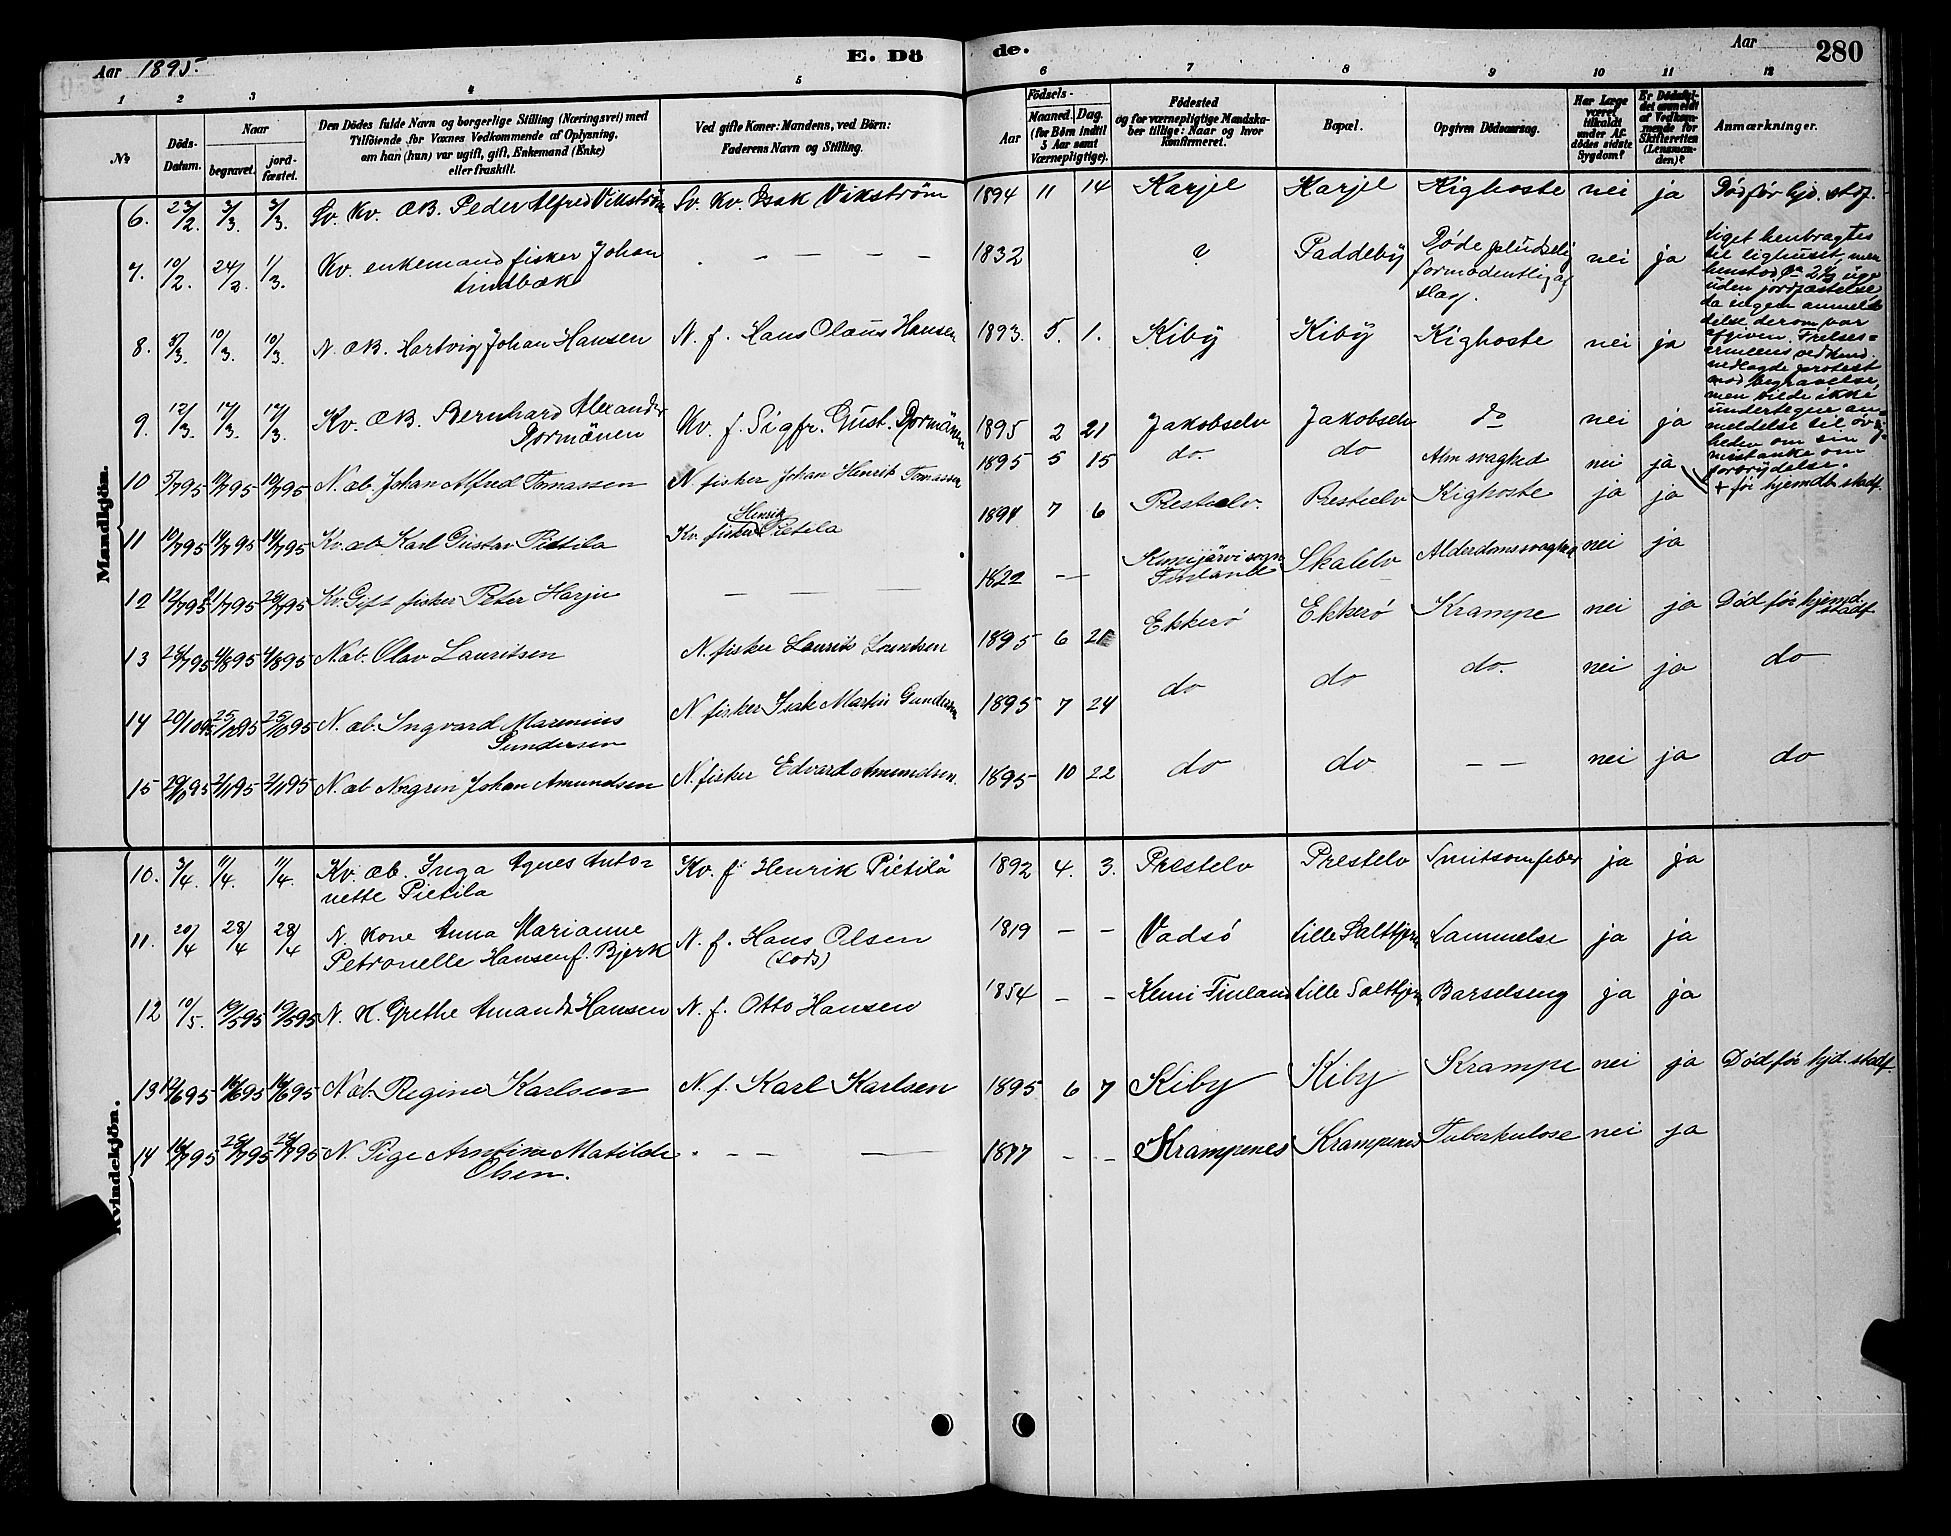 Aar 1895.
E. Dö
de.
Aar
280
1 2 3 4 5 6 7 8 9 10 11 12
No
Döds-
Datum.
Naar
begravet.
jord-
fæstet.
Den Dödes fulde Navn og borgerlige Stilling (Næringsvei) med
Tilföiende for Voxnes Vedkommende af Oplysning,
om han (hun) var ugift, gift, Enkemand (Enke)
eller fraskilt.
Ved gifte Koner: Mandens, ved Börn:
Faderens Navn og Stilling.
Födsels-
Aar
Maaned. Dag.
(for Börn indtil
5 Aar samt
Værnepligtige).
Födested
og for værnepligtige Mandska-
ber tillige: Naar og hvor
konfirmeret.
Bopæl.
Opgiven Dödsaarsag.
Har Læge
været
tilkaldt
under Af-
dödes sidste
Sygdom?
Er Dödsfal-
det anmeldt
af Vedkom-
mende for
Skifteretten
(Lensman-
den)?
Anmærkninger.
Mandkjön.
6. 23/2. 3/3. 3/3. Sv. Kv. ÆB. Peder Alfred Vikström Sv. Kv. Isak Vikström 1894 11 14 Karjel Karjel Kighoste nei ja Död för hjd. stf.
7. 10/2. 24/2. 1/3. Kv. enkemand fisker Johan
Lindbæk
. — — — — 1832 ? Paddeby Döde pludselig
formodentlig af
slag.
nei ja
Liget henbragtes
til lighuset, men
henstod ca 2 1/2 uge
uden jordfæstelse
da ingen anmel-
delse derom var
afgiven. Frelses-
armeens vedkmd.
nedlagde protest
mod begravelse,
men vilde ikke
undertegne an-
meldelse til öv-
heden om sin
mistanke om
forbrydelse.
8. 5/3. 10/3. 10/3. N. ÆB. Hartvig Johan Hansen N. f. Hans Olaus Hansen 1893. 5. 1. Kiby Kiby Kighoste nei ja
9. 12/3. 17/3. 17/3. Kv. ÆB. Bernhard Alexander
Pormänen
Kv. f. Sigfr. Gust. Pormänen 1895 2 21 Jakobselv Jakobselv do nei ja
10 5/7 95 10/7 95 10/7 95 N. æb. Johan Alfred Tomassen N fisker Johan Henrik Tomassen 1895 5 15 do. do Alm svaghed nei ja + för hjemdb stadf.
11 10/7 95 14/7 95 14/7 95 Kv. æb. Karl Gustav Pietila Kv. fisker Henrik Pietila 1894 7 6 Prestelv. Prestelv Kighoste ja ja
12 12/7 95 21/7 95 28/7 95 Kv. Gift fisker Peter Harju — — — — 1822 — — Kemijärvi sogn
Finland
Skalelv Alderdomssvaghed nei ja
13 28/7 95 4/8 95 4/8 95 N. æb. Olav Lauritsen N. fisker Laurits Lauritsen 1895 6 21 Ekkerö Ekkerö Krampe nei ja Död för hjemd
stadf
14 20/10 95 25/10 95 25/10 95 N. æb. Ingvard Marenius
Gundersen
N fisker Isak Martin Gundersen 1895 7 24 do do do. nei ja do
15 29/10 95 2/11 95 2/11 95 N. æb Negrin Johan Amundsen N. fisker Edvard Amundsen. 1895 10 22 do do — — nei ja do
Kvindekjön.
10. 3/4. 11/4. 11/4. Kv. æb. Inga Agnes Anto-
nette Pietila
Kv. f Henrik Pietilä 1892 4. 3. Prestelv Prestelv Smitsom feber ja ja
11. 20/4 28/4 28/4 N. kone Anna Marianne
Petronelle Hansen f. Bjerk
N. f. Hans Olsen
(Lods)
1819 — — Vadsö Lille Saltbjern Lammelse ja ja
12 10/5. 19/5 95 19/5 95 N. K. Grethe Amanda Hansen N. f. Otto Hansen 1854 — — Kemi Finland Lille Saltbjern Barselseng ja ja
13 12/6 95 16/6 95 16/6 95 N æb. Regine Karlsen N. f. Karl Karlsen 1895. 6 7 Kiby Kiby Krampe nei ja Död för hjd. stadf.
14 16/7 95 28/7 95 28/7 95 N. Pige Arntine Matilde
Olsen.
. — — — 1877 — — Krampenes Krampenes Tuberkulose nei ja